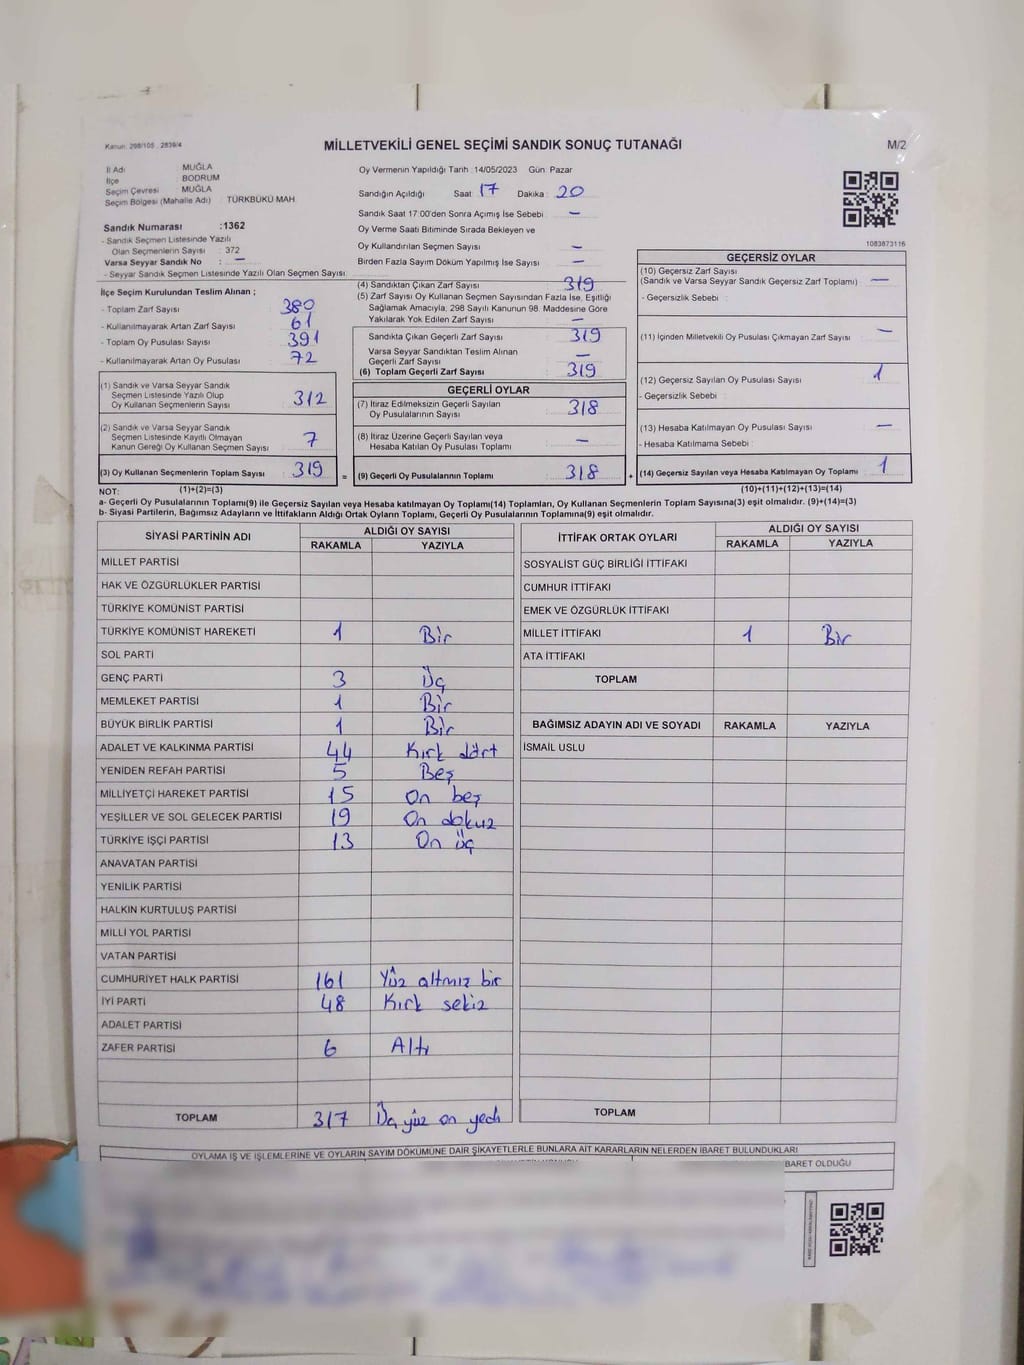 Kanun: 298/105 , 2839/4
MİLLETVEKİLİ GENEL SEÇİMİ SANDIK SONUÇ TUTANAĞI
M/2
İl Adı : MUĞLA
İlçe : BODRUM
Seçim Çevresi : MUĞLA
Seçim Bölgesi (Mahalle Adı) : TÜRKBÜKÜ MAH.
Sandık Numarası :1362
- Sandık Seçmen Listesinde Yazılı
Olan Seçmenlerin Sayısı : 372
Varsa Seyyar Sandık No : —
- Seyyar Sandık Seçmen Listesinde Yazılı Olan Seçmen Sayısı:
Oy Vermenin Yapıldığı Tarih :14/05/2023 Gün: Pazar
Sandığın Açıldığı Saat: 17 Dakika : 20
Sandık Saat 17:00'den Sonra Açımış İse Sebebi : —
Oy Verme Saati Bitiminde Sırada Bekleyen ve
Oy Kullandırılan Seçmen Sayısı : —
Birden Fazla Sayım Döküm Yapılmış İse Sayısı : —
1083873116
İlçe Seçim Kurulundan Teslim Alınan ;
- Toplam Zarf Sayısı : 380
- Kullanılmayarak Artan Zarf Sayısı : 61
- Toplam Oy Pusulası Sayısı : 391
- Kullanılmayarak Artan Oy Pusulası : 72
(1) Sandık ve Varsa Seyyar Sandık
Seçmen Listesinde Yazılı Olup
Oy Kullanan Seçmenlerin Sayısı : 312
(2) Sandık ve Varsa Seyyar Sandık
Seçmen Listesinde Kayıtlı Olmayan
Kanun Gereği Oy Kullanan Seçmen Sayısı : 7
(3) Oy Kullanan Seçmenlerin Toplam Sayısı : 319
(4) Sandıktan Çıkan Zarf Sayısı : 319
(5) Zarf Sayısı Oy Kullanan Seçmen Sayısından Fazla İse, Eşitliği
Sağlamak Amacıyla, 298 Sayılı Kanunun 98. Maddesine Göre
Yakılarak Yok Edilen Zarf Sayısı : —
Sandıkta Çıkan Geçerli Zarf Sayısı : 319
Varsa Seyyar Sandıktan Teslim Alınan
Geçerli Zarf Sayısı : —
(6) Toplam Geçerli Zarf Sayısı : 319
GEÇERLİ OYLAR
(7) İtiraz Edilmeksizin Geçerli Sayılan
Oy Pusulalarının Sayısı : 318
(8) İtiraz Üzerine Geçerli Sayılan veya
Hesaba Katılan Oy Pusulası Toplamı : —
= (9) Geçerli Oy Pusulalarının Toplamı : 318 +
GEÇERSİZ OYLAR
(10) Geçersiz Zarf Sayısı
(Sandık ve Varsa Seyyar Sandık Geçersiz Zarf Toplamı) : —
- Geçersizlik Sebebi :
(11) İçinden Milletvekili Oy Pusulası Çıkmayan Zarf Sayısı : —
(12) Geçersiz Sayılan Oy Pusulası Sayısı : 1
- Geçersizlik Sebebi :
(13) Hesaba Katılmayan Oy Pusulası Sayısı : —
- Hesaba Katılmama Sebebi :
(14) Geçersiz Sayılan veya Hesaba Katılmayan Oy Toplamı : 1
NOT: (1)+(2)=(3) (10)+(11)+(12)+(13)=(14)
a- Geçerli Oy Pusulalarının Toplamı(9) ile Geçersiz Sayılan veya Hesaba katılmayan Oy Toplamı(14) Toplamları, Oy Kullanan Seçmenlerin Toplam Sayısına(3) eşit olmalıdır. (9)+(14)=(3)
b- Siyasi Partilerin, Bağımsız Adayların ve İttifakların Aldığı Ortak Oyların Toplamı, Geçerli Oy Pusulalarının Toplamına(9) eşit olmalıdır.
SİYASİ PARTİNİN ADI ALDIĞI OY SAYISI
RAKAMLA YAZIYLA
MİLLET PARTİSİ
HAK VE ÖZGÜRLÜKLER PARTİSİ
TÜRKİYE KOMÜNİST PARTİSİ
TÜRKİYE KOMÜNİST HAREKETİ 1 Bir
SOL PARTİ
GENÇ PARTİ 3 Üç
MEMLEKET PARTİSİ 1 Bir
BÜYÜK BİRLİK PARTİSİ 1 Bir
ADALET VE KALKINMA PARTİSİ 44 Kırk dört
YENİDEN REFAH PARTİSİ 5 Beş
MİLLİYETÇİ HAREKET PARTİSİ 15 On beş
YEŞİLLER VE SOL GELECEK PARTİSİ 19 On dokuz
TÜRKİYE İŞÇİ PARTİSİ 13 On üç
ANAVATAN PARTİSİ
YENİLİK PARTİSİ
HALKIN KURTULUŞ PARTİSİ
MİLLİ YOL PARTİSİ
VATAN PARTİSİ
CUMHURİYET HALK PARTİSİ 161 Yüz altmış bir
İYİ PARTİ 48 Kırk sekiz
ADALET PARTİSİ
ZAFER PARTİSİ 6 Altı
TOPLAM 317 Üç yüz on yedi
İTTİFAK ORTAK OYLARI ALDIĞI OY SAYISI
RAKAMLA YAZIYLA
SOSYALİST GÜÇ BİRLİĞİ İTTİFAKI
CUMHUR İTTİFAKI
EMEK VE ÖZGÜRLÜK İTTİFAKI
MİLLET İTTİFAKI 1 Bir
ATA İTTİFAKI
TOPLAM
BAĞIMSIZ ADAYIN ADI VE SOYADI RAKAMLA YAZIYLA
İSMAİL USLU
TOPLAM
OYLAMA İŞ VE İŞLEMLERİNE VE OYLARIN SAYIM DÖKÜMÜNE DAİR ŞİKAYETLERLE BUNLARA AİT KARARLARIN NELERDEN İBARET BULUNDUKLARI
İBARET OLDUĞU